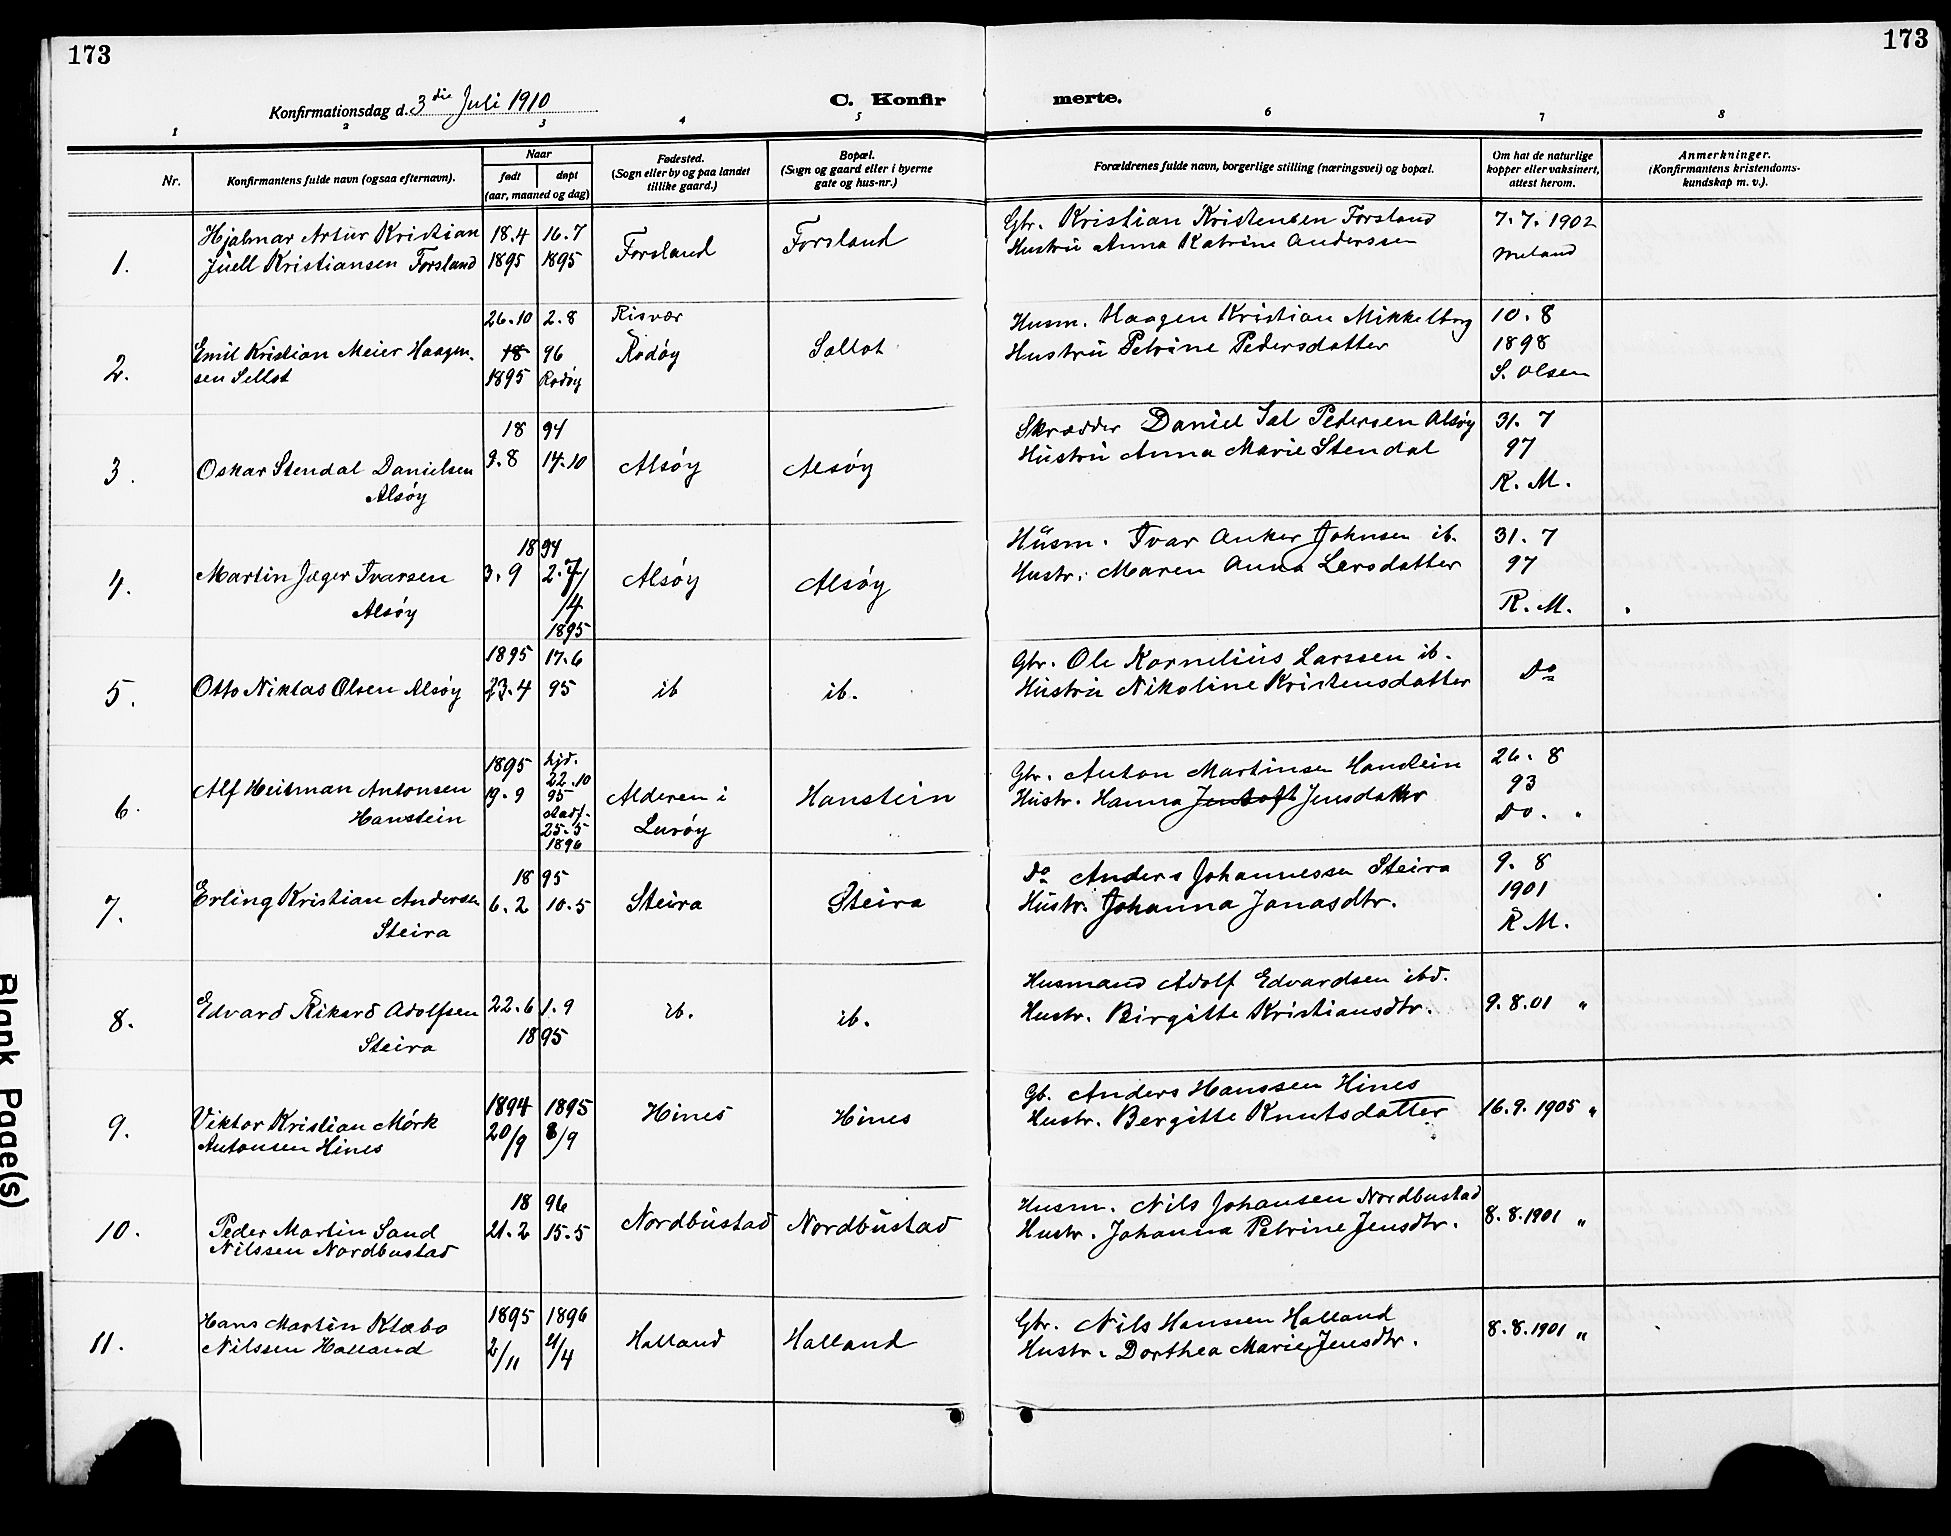 173
173
Konfirmationsdag d. 3die Juli 1910
C. Konfir
merte.
1
2
3
4
5
6
7
8
Nr.
Konfirmantens fulde navn (ogsaa efternavn).
Naar
født
døpt
(aar, maaned og dag)
Fødested.
(Sogn eller by og paa landet
tillike gaard.)
Bopæl.
(Sogn og gaard eller i byerne
gate og hus-nr.)
Forældrenes fulde navn, borgerlige stilling (næringsvei) og bopæl.
Om hat de naturlige
kopper eller vaksinert,
attest herom.
Anmerkninger.
(Konfirmantens kristendoms-
kundskap m. v.).
1.
Hjalmar Artur Kristian
Juell Kristiansen Forsland
18.4
1895
16.7
1895
Forsland
Forsland
Gbr. Kristian Kristensen Forsland
Hustru Anna Katrine Anderssen
7.7.1902
Meland
2.
Emil Kristian Meier Haagen-
sen Selløt
26.10
18
1895
2.8
96
Rødøy
Risvær
Rødøy
Husm. Haagen Kristian Mikkelborg
Hustru Petrine Pedersdatter
10.8
1898
S. Olsen
3.
Oskar Stendal Danielsen
Alsøy
18 94
9.8
14.10
Alsøy
Alsøy
Skrædder Daniel Pedersen Alsøy
Hustru Anna Marie Stendal
31.7
97
R. M.
4.
Martin Jæger Ivarsen
Alsøy
18 94
3.9
2.7/
/4
1895
Alsøy
Alsøy
Husm. Ivar Anker Johnsen ib.
Hustr. Maren Anna Larsdatter
31.7
97
R. M.
5.
Otto Niklas Olsen Alsøy
1895
23.4
17.6
95
ib
ib.
Gbr. Ole Kornelius Larssen ib.
Hustru Nikoline Kristensdatter
Do
6.
Alf Heitman Antonsen
Hanstein
1895
19.9
hjd.
22.10
95
stadf.
25.5
1896
Alderen i
Lurøy
Hanstein
Gbr. Anton Martinsen Hanstein
Hustr. Hanna Jentoft Jensdatter
26.8
93
Do. "
7.
Erling Kristian Andersen
Steira
18 95
6.2
10.5
Steira
Steira
Do Anders Johannessen Steira
Hustr. Johanna Jonasdtr.
9.8
1901
R M.
8.
Edvard Rikard Adolfsen
Steira
22.6
1.9
18 95
ib.
ib.
Husmand Adolf Edvardsen ibd.
Hustr. Birgitte Kristiansdtr.
9.8.01 "
9.
Viktor Kristian Mørk
Antonsen Hines
1894
20/9
1895
8/9
Hines
Hines
Gb. Anders Hanssen Hines
Hustr. Bergitte Knutsdatter
16.9.1905 "
10.
Peder Martin Sand
Nilssen Nordbustad
18 96
21.2
15.5
Nordbustad
Nordbustad
Husm. Nils Johansen Nordbustad
Hustr. Johanna Petrine Jensdtr.
8.8.1901 "
11.
Hans Martin Klæbo
Nilssen Halland
1895
2/11
1896
4/4
Halland
Halland
Gbr. Nils Hanssen Halland
Hustr. Dorthea Marie Jensdtr.
8.8.1901 "
Blank Page(s)